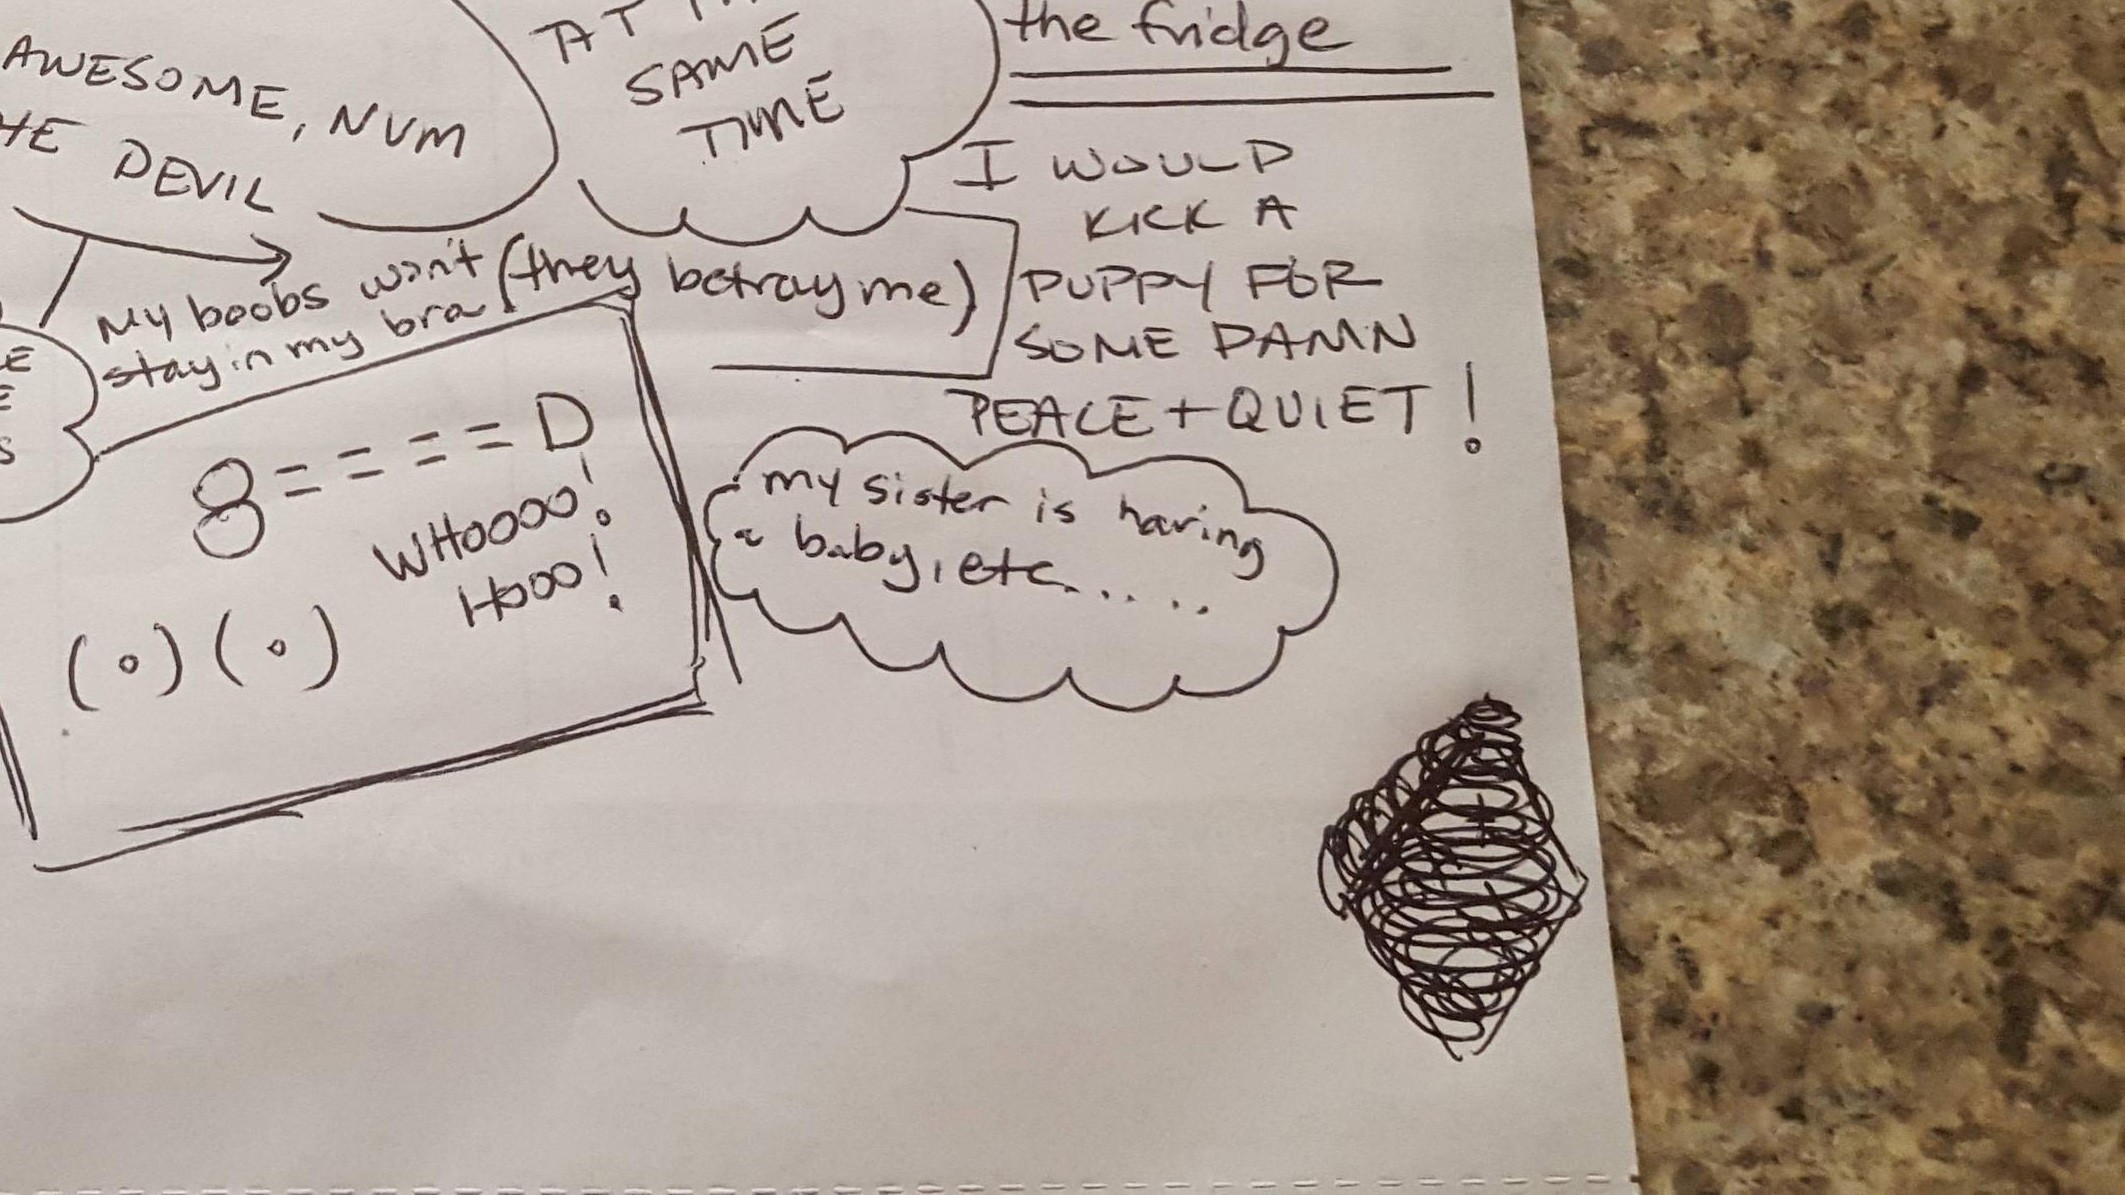 AWESOME, NVM
HE DEVIL
AT
SAME
TIME
the fridge
I WOULD
KICK A
PUPPY FOR
SOME DAMN
PEACE + QUIET!
My boobs won't (they betray me)
stay in my bra
8====D
WHOOOO!
HOOO!
(o)(o)
my sister is having
a baby, etc......